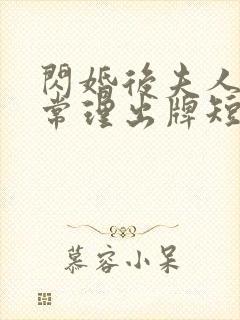 閃婚後夫人
常理出牌短
慕容小呆